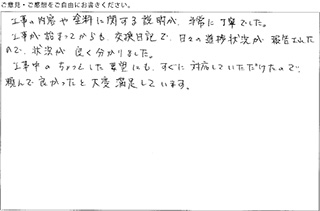 ご意見・ご感想をご自由にお書きください。
工事の内容や金料に関する説明が、非常に丁寧でした。
工事が始まってからも、交換日記で、日々の進捗状況が報告された
ので、状況が良く分かりました。
工事中のちょっとした要望にも、すぐに対応していただけたので、
頼んで良かったと大変満足しています。